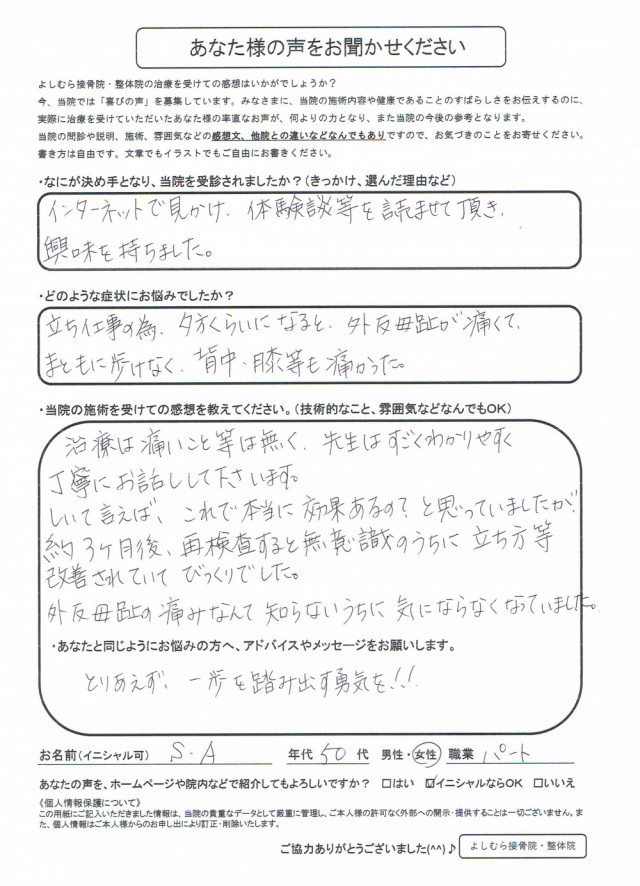 あなた様の声をお聞かせください
よしむら接骨院・整体院の治療を受けての感想はいかがでしょうか?
今、当院では「喜びの声」を募集しています。みなさまに、当院の施術内容や健康であることのすばらしさをお伝えするのに、
実際に治療を受けていただいたあなた様の率直なお声が、何よりの力となり、また当院の今後の参考となります。
当院の問診や説明、施術、雰囲気などの感想文、他院との違いなどなんでもありですので、お気づきのことをお寄せください。
書き方は自由です。文章でもイラストでもご自由にお書きください。
・なにが決め手となり、当院を受診されましたか?(きっかけ、選んだ理由など)
インターネットで見かけ、体験談等を読ませて頂き、
興味を持ちました。
・どのような症状にお悩みでしたか?
立ち仕事の為、夕方くらいになると、外反母趾が痛くて、
まともに歩けなく、背中・膝等も痛かった。
・当院の施術を受けての感想を教えてください。(技術的なこと、雰囲気などなんでもOK)
治療は痛いこと等は無く、先生はすごくわかりやすく
丁寧にお話しして下さいます。
しいて言えば、これで本当に効果あるの?と思っていましたが!
約3ヶ月後、再検査すると無意識のうちに立ち方等
改善されていてびっくりでした。
外反母趾の痛みなんて知らないうちに気にならなくなっていました。
・あなたと同じようにお悩みの方へ、アドバイスやメッセージをお願いします。
とりあえず、一歩を踏み出す勇気を!!
お名前(イニシャル可) S.A 年代 50 代 男性・女性 職業 パート
あなたの声を、ホームページや院内などで紹介してもよろしいですか? □はい ☑イニシャルならOK □いいえ
《個人情報保護について》
この用紙にご記入いただきました情報は、当院の貴重なデータとして厳重に管理し、ご本人様の許可なく外部への開示・提供することは一切ございません。ま
た、個人情報はご本人様からのお申し出により訂正・削除いたします。
ご協力ありがとうございました(^^)♪ よしむら接骨院・整体院